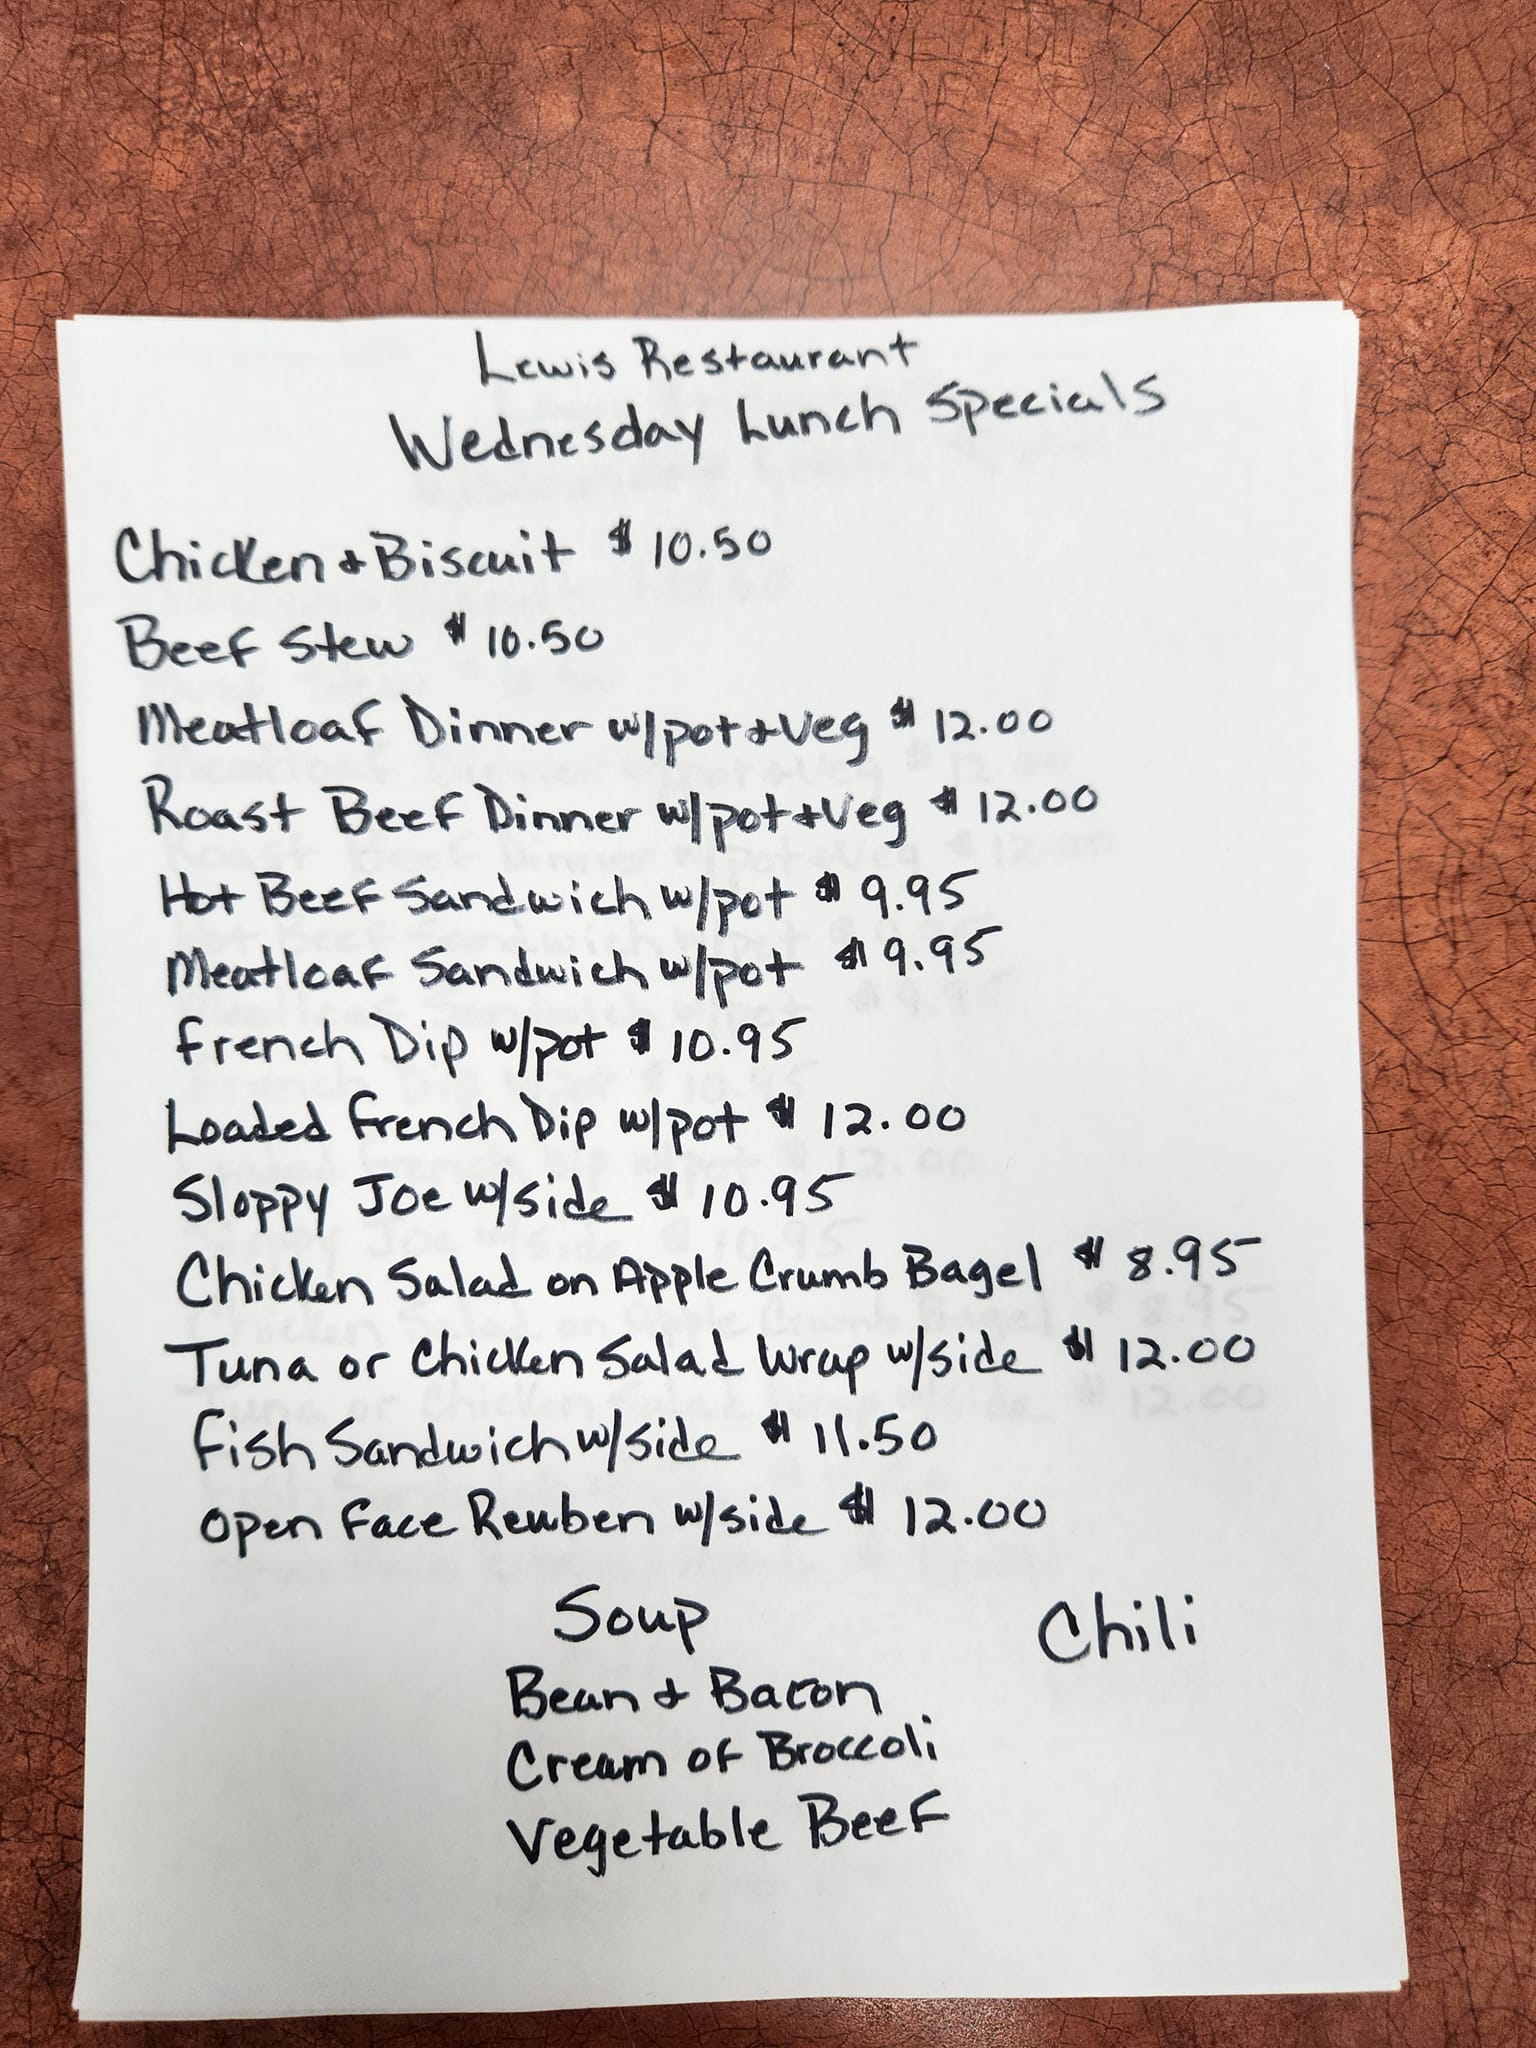 Lewis Restaurant
Wednesday Lunch Specials
Chicken + Biscuit $ 10.50
Beef Stew $ 10.50
Meatloaf Dinner w/pot + Veg $ 12.00
Roast Beef Dinner w/pot + Veg $ 12.00
Hot Beef Sandwich w/pot $ 9.95
Meatloaf Sandwich w/pot $ 9.95
French Dip w/pot $ 10.95
Loaded French Dip w/pot $ 12.00
Sloppy Joe w/side $ 10.95
Chicken Salad on Apple Crumb Bagel $ 8.95
Tuna or Chicken Salad Wrap w/side $ 12.00
Fish Sandwich w/side $ 11.50
Open Face Reuben w/side $ 12.00
Soup
Bean + Bacon
Cream of Broccoli
Vegetable Beef
Chili